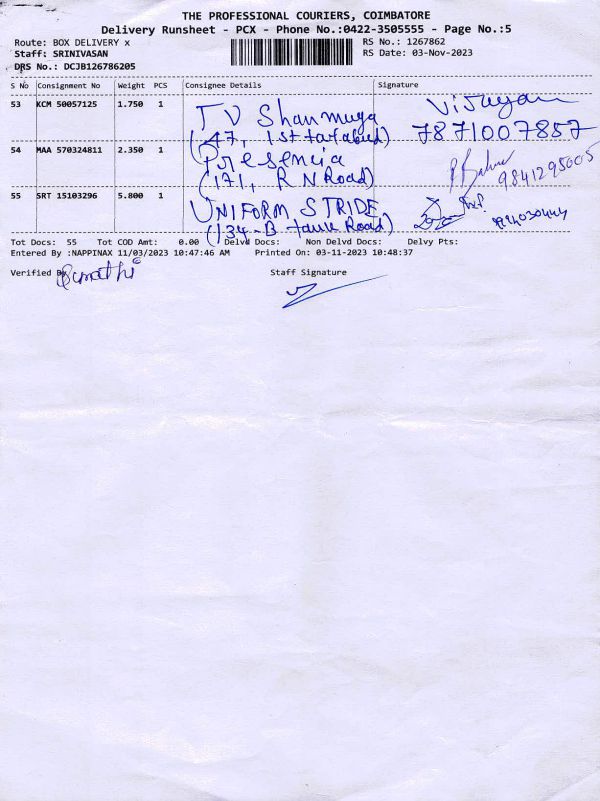 THE PROFESSIONAL COURIERS, COIMBATORE
Delivery Runsheet - PCX - Phone No.:0422-3505555 - Page No.:5
Route: BOX DELIVERY x RS No.: 1267862
Staff: SRINIVASAN RS Date: 03-Nov-2023
DRS No.: DCJB126786205
S No Consignment No Weight PCS Consignee Details Signature
53 KCM 50057125 1.750 1 TV Shanmuga Vijayan
(47, 1st 7871007857
54 MAA 570324811 2.350 1 Presencia
(171, R N Road) 9841295005
55 SRT 15103296 5.800 1 UNIFORM STRIDE
(134-B Road)
Tot Docs: 55 Tot COD Amt: 0.00 Delvd Docs: Non Delvd Docs: Delvy Pts:
Entered By :NAPPINAX 11/03/2023 10:47:46 AM Printed On: 03-11-2023 10:48:37
Verified Staff Signature